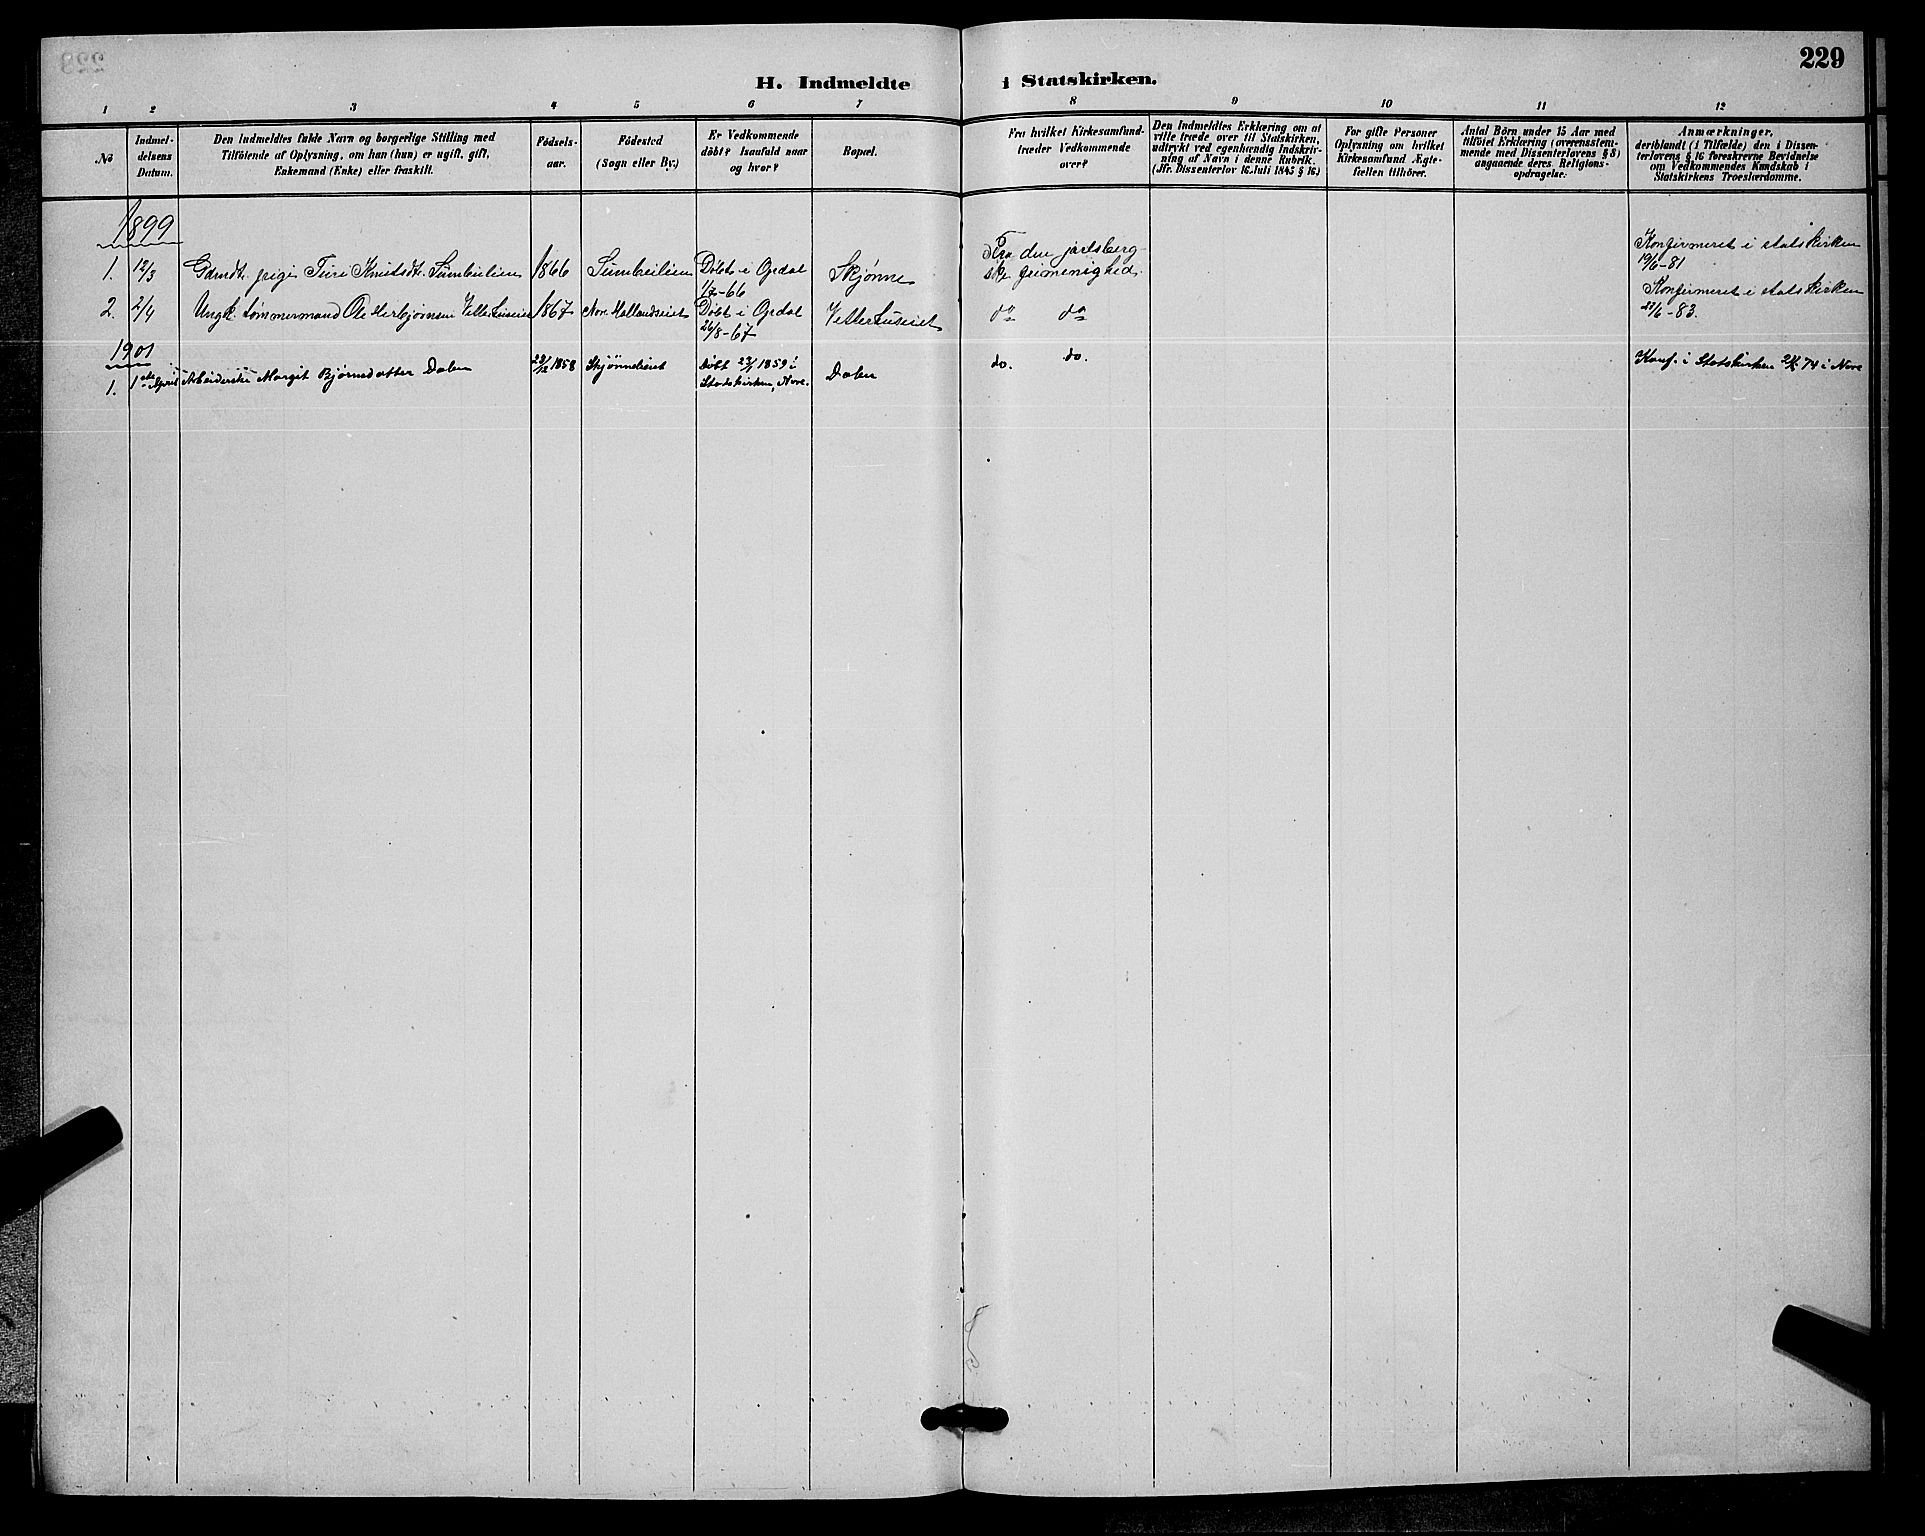 229
H. Indmeldte i Statskirken.
1 2 3 4 5 6 7 8 9 10 11 12
No
Indmel-
delsens
Datum.
Den Indmeldtes fulde Navn og borgerlige Stilling med
Tilföiende af Oplysning, om han (hun) er ugift, gift,
Enkemand (Enke) eller fraskilt.
Födsels-
aar.
Födested
(Sogn eller By.)
Er Vedkommende
döbt? Isaafald naar
og hvor?
Bopæl.
Fra hvilket Kirkesamfund-
træder Vedkommende
over?
Den Indmeldtes Erklæring om at
ville træde over til Statskirken,
udtrykt ved egenhændig Indskriv-
ning af Navn i denne Rubrik.
(Jfr. Dissenterlov 16 Juli 1845 § 16)
For gifte Personer
Oplysning om hvilket
Kirkesamfund Ægte-
fællen tilhörer.
Antal Börn under 15 Aar med
tilföiet Erklæring (overensstem-
mende med Dissenterlovens § 8)
angaaende deres Religions-
opdragelse:
Anmærkninger,
deriblandt (i Tilfælde) den i Dissen-
terlovens § 16 foreskrevne Bevidnelse
om Vedkommendes Kundskab i
Statskirkens Troeslærdomme.
1899
1. 12/3 Gdmdt. pige Turi Knutsdt. 1866 Døbt i Opdal 1/7-66 Skjønne Fra den jarlsberg-
ske frimenighed. Konfirmeret i statskirken
19/6-81
2. 2/4 Ungk. Tømmermand Ole Herbjørnsen Vetterhuseiet 1867 Nore Hallandseiet Døbt i Opdal 26/8-67 Vetterhuseiet do do Konfirmeret i statskirken
/6-83.
1901
1. 1ste April Arbeiderske Margit Bjørnsdatter Dalen 29/12 1858 Skjønneeiet Døbt 23/1 1859 i
Statskirken, Nore. Dalen do. do. Konf. i Statskirken 74 i Nore